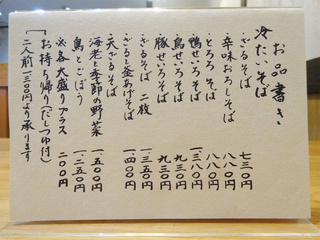 お品書き
冷たいそば
・ざるそば 七三〇円
・辛味おろしそば 八八〇円
・とろろそば 八八〇円
・鴨せいろそば 一三八〇円
・鳥せいろそば 九三〇円
・豚せいろそば 九三〇円
・ざるそば 二枚 一三五〇円
・ざると釜あげそば 一四〇〇円
・天ざるそば
海老と季節の野菜 一五〇〇円
鳥とごぼう 一二五〇円
※各大盛りプラス 二〇〇円
「お持ち帰り(だしつゆ付)
二人前一三〇〇円より承ります」